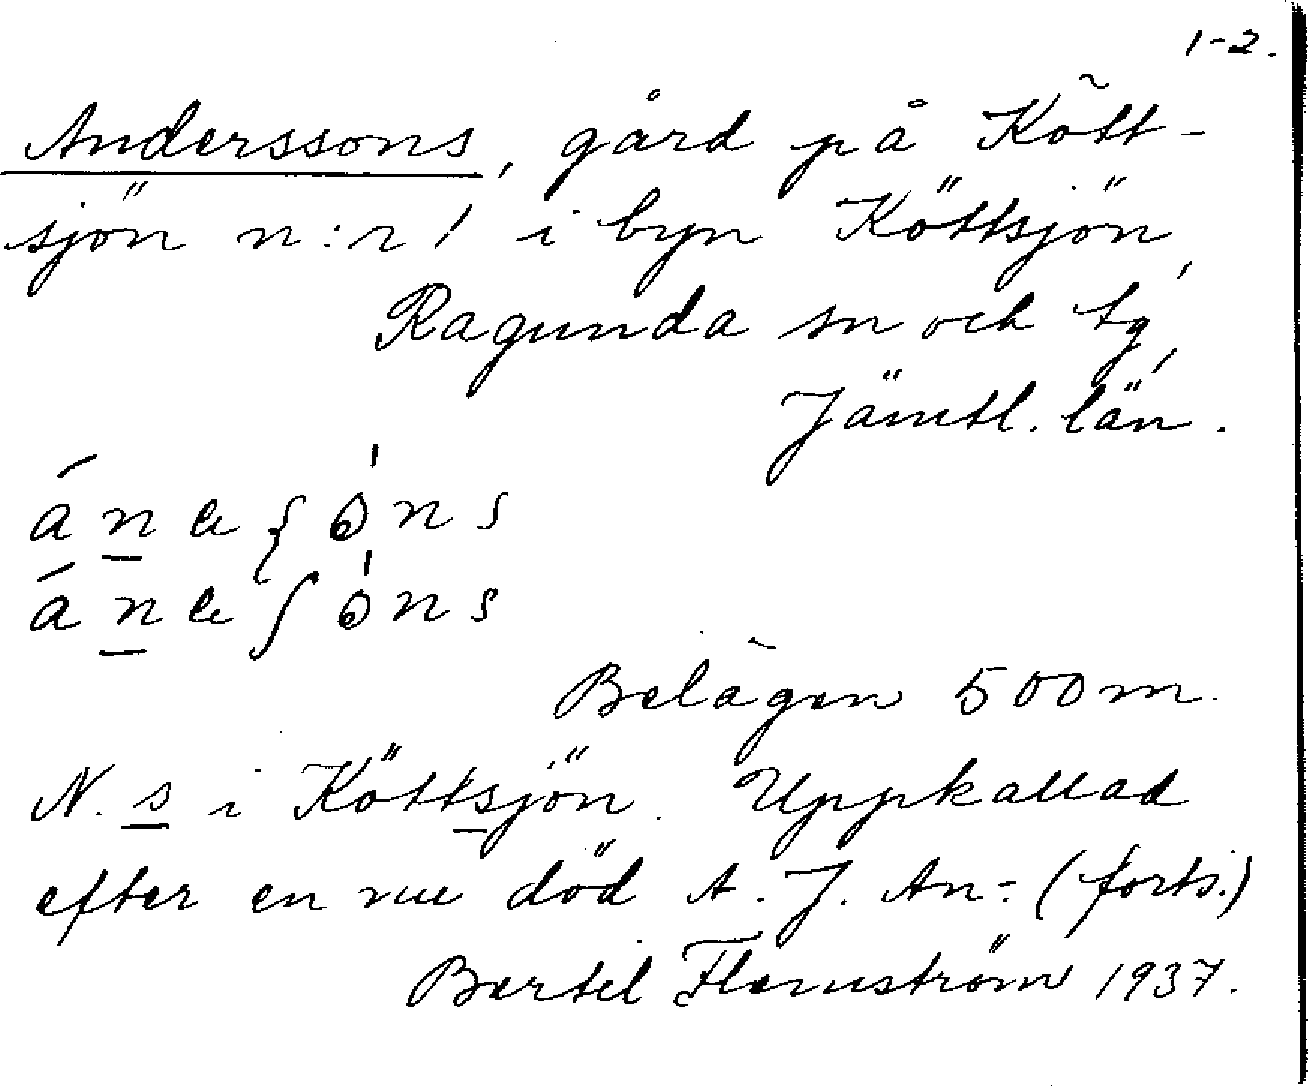 1-2.
Anderssons, gård på Kött-
sjön n:r 1 i byn Köttsjön,
Ragunda sn och tg,
Jämtl. län.
Belägen 500 m.
N. s i Köttsjön. Uppkallad
efter en nu död A. J. An- (forts.)
Bertil Flemström 1937.